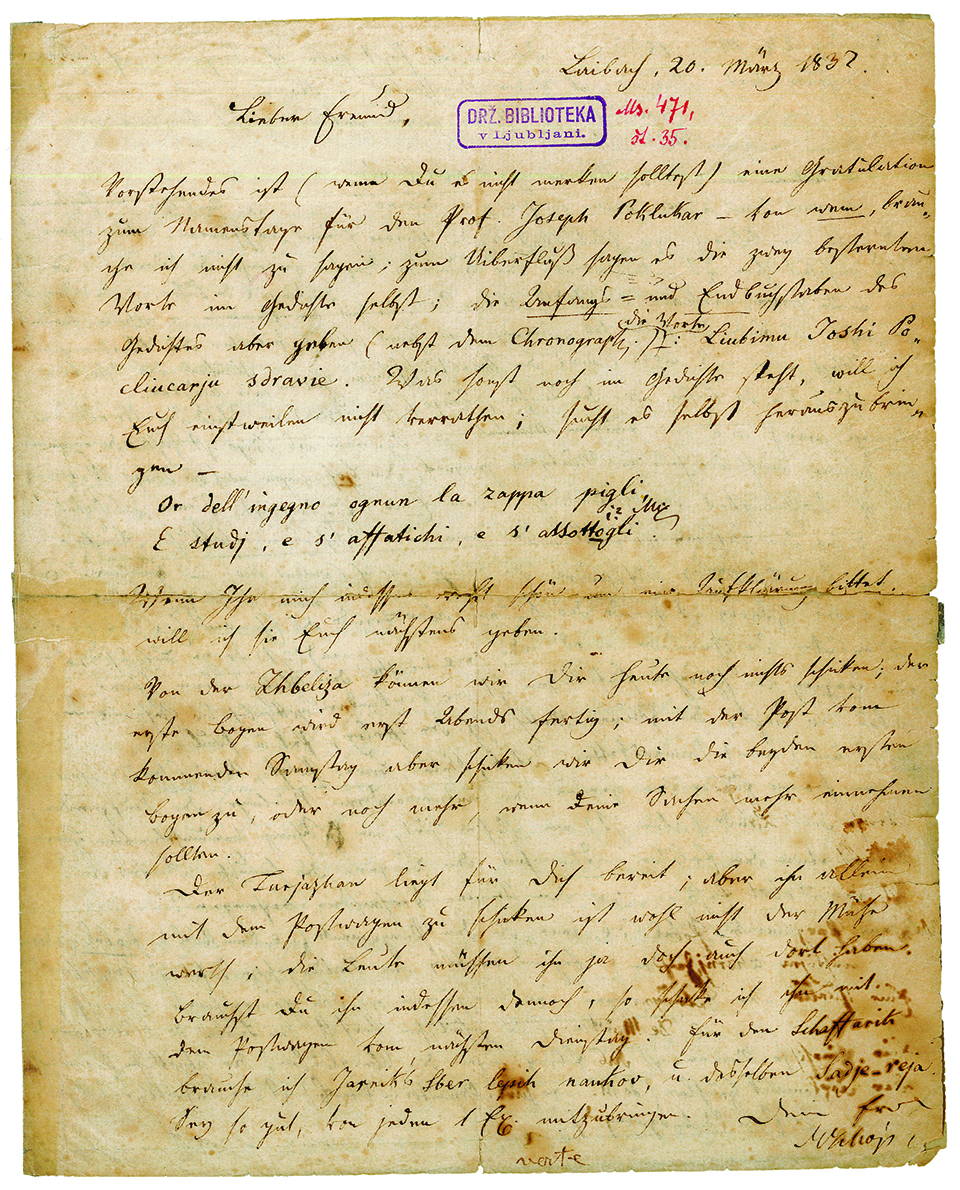 Laibach, 20. März 1832.
Lieber Freund,
DRŽ. BIBLIOTEKA
v Ljubljani.
Ms. 471,
št. 35.
Vorstehendes ist (wenn Du es nicht merken solltest) eine Gratulation
zum Namenstage für den Prof. Joseph Poklukar – von wem, brau=
che ich nicht zu sagen; zum Uiberfluß sagen es die zwey besternten
Worte im Gedichte selbst; die Anfangs= und Endbuchstaben des
Gedichtes aber geben (nebst dem Chronograph.) die Worte: Liubimu Joshi Po=
cliucarju sdravie. Was sonst noch im Gedichte steht, will ich
Euch einstweilen nicht verrathen; sucht es selbst herauszubrin=
gen –
Or dell'ingegno ognun la zappa pigli,
E studj, e s'affatichi, e s'assottogli.
Wenn Ihr mich recht schön um eine Aufklärung bittet,
will ich sie Euch nächstens geben.
Von der Zhbeliza können wir Dir heute noch nichts schicken; der
erste Bogen wird erst Abends fertig; mit der Post vom
kommenden Samstag aber schicken wir Dir die beyden ersten
Bogen zu, oder noch mehr, wenn Deine Sachen mehr einnehmen
sollten.
Der Turjazhan liegt für Dich bereit; aber ihn allein
mit dem Postwagen zu schicken ist wohl nicht der Mühe
werth; die Leute müssen ihn ja doch auch dort haben.
Brauchst Du ihn indessen dennoch, so schicke ich ihn mit
dem Postwagen vom nächsten Dienstag. Für den Schaffarik
brauche ich Jarnik's Sber lepih naukov, u. desselben Sadje-reja.
Sey so gut, von jedem 1 Ex. mitzubringen. Dein Frd
verte